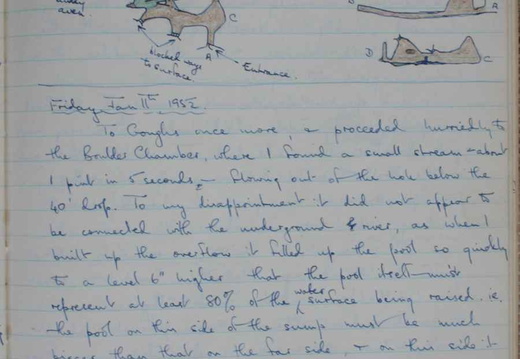 aven
C
B
A
blocked ways
to surface.
A
Entrance.
D
C
Friday Jan 11th 1952.
To Goughs once more, & proceeded hurriedly to
the Boulder Chamber, where I found a small stream - about
1 pint in 5 seconds, - flowing out of the hole below the
40' drop. To my disappointment it did not appear to
be connected with the underground river, as when I
built up the overflow it filled up the pool so quickly
to a level 6" higher that the pool itself must
represent at least 80% of the water surface being raised. i.e.
the pool on this side of the sump must be much
bigger than that on the far side & on this side it